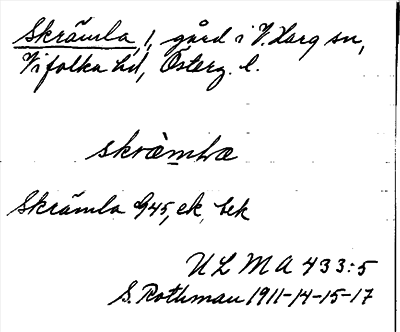 Skrämla, 1, gård i V. Harg sn,
Vifolka hd, Österg. l.
skræmLa
Skrämla G45, ek, bek
ULMA 433:5
S. Rothman 1911-14-15-17